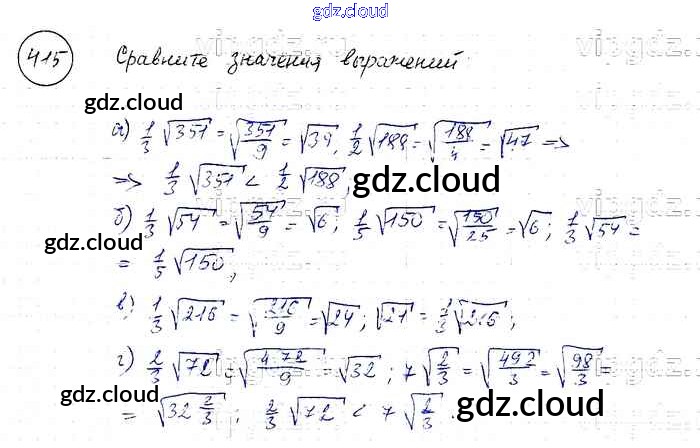 gdz.cloud
415 Сравните значения выражений
gdz.cloud
а) 1/3 √351 = √(351/9) = √39, 1/2 √188 = √(188/4) = √47 =>
=> 1/3 √351 < 1/2 √188,
gdz.cloud
б) 1/3 √54 = √(54/9) = √6; 1/5 √150 = √(150/25) = √6; 1/3 √54 =
gdz.cloud
= 1/5 √150,
в) 1/3 √216 = √(216/9) = √24; √21 = 1/3 √216;
г) 2/3 √72 = √(4·72/9) = √32; 7 √(2/3) = √(49·2/3) = √(98/3) =
gdz.cloud
= √(32 2/3); 2/3 √72 < 7 √(2/3).
gdz.cloud